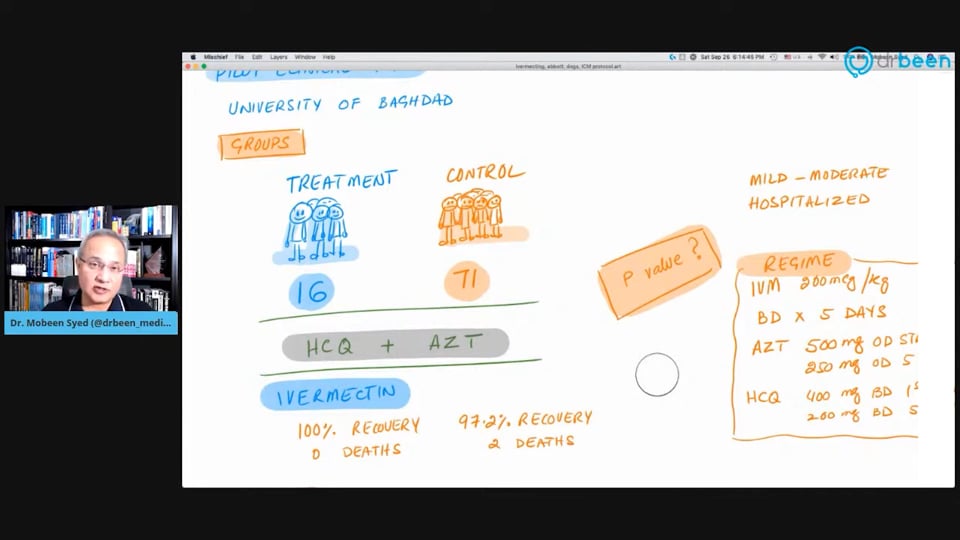 drbeen
Mischief File Edit Layers Window Help
Sat Sep 26 6:14:45 PM
ivermecting, abbott, dogs, ICM protocol.art
PILOT CLINICAL
UNIVERSITY OF BAGHDAD
GROUPS
TREATMENT
CONTROL
16
71
HCQ + AZT
IVERMECTIN
100% RECOVERY
0 DEATHS
97.2% RECOVERY
2 DEATHS
P value?
MILD - MODERATE
HOSPITALIZED
REGIME
IVM 200mcg/kg
BD x 5 DAYS
AZT 500mg OD
250mg OD 5
HCQ 400mg BD
200mg BD 5
Dr. Mobeen Syed (@drbeen_medi...